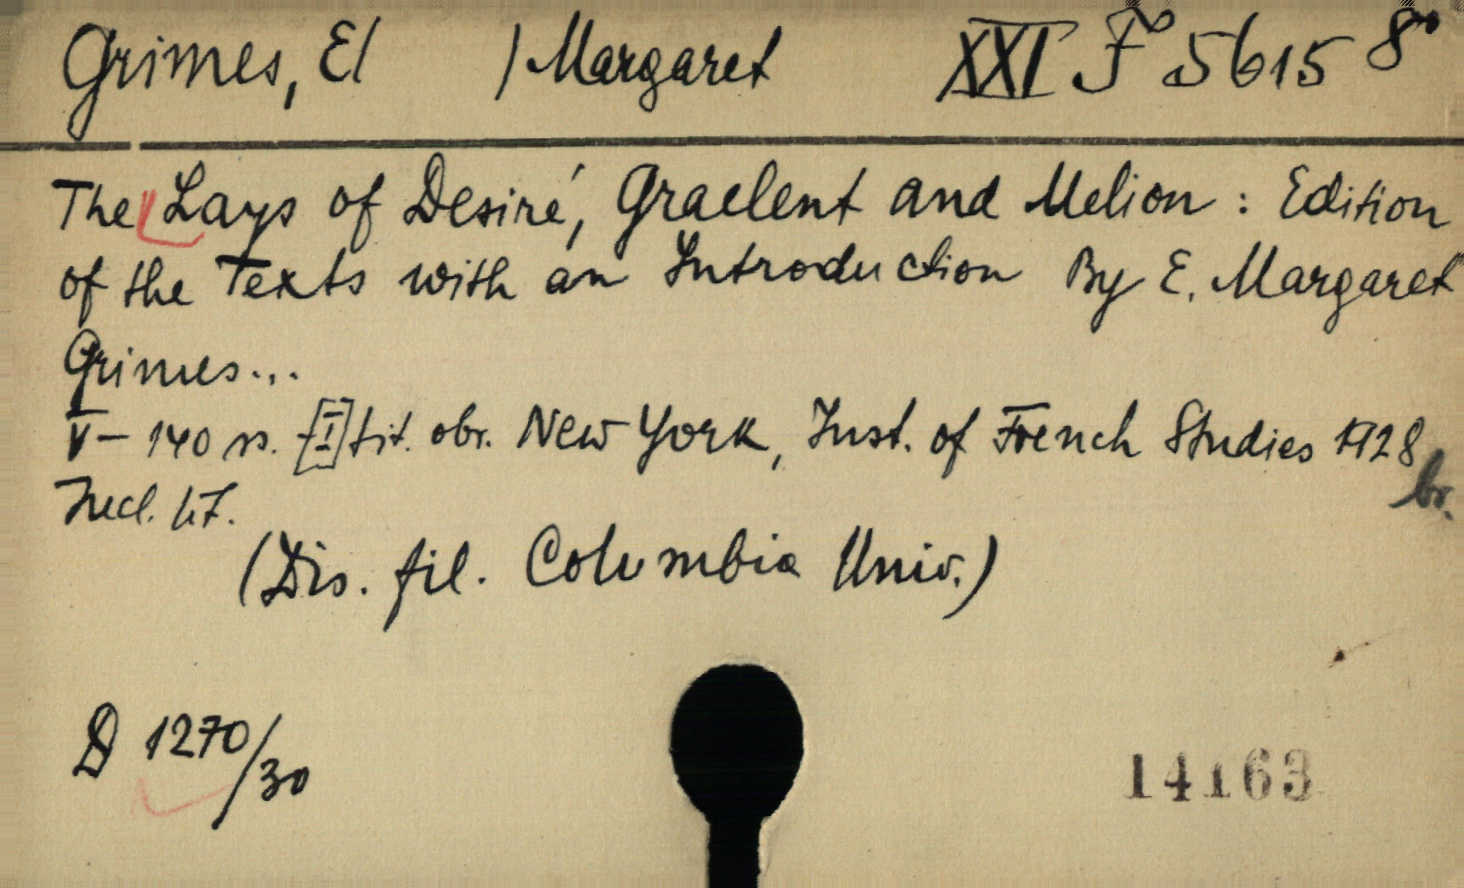 Grimes, El / Margaret XXI F 5615 8°
The Lays of Desiré, Graelent and Melion : Edition
of the Texts with an Introduction By E. Margaret
Grimes...
V – 140 s. [I] tit. obr. New York, Inst. of French Studies 1928
br.
(Dis. fil. Columbia Univ.)
D 1270/30
14163